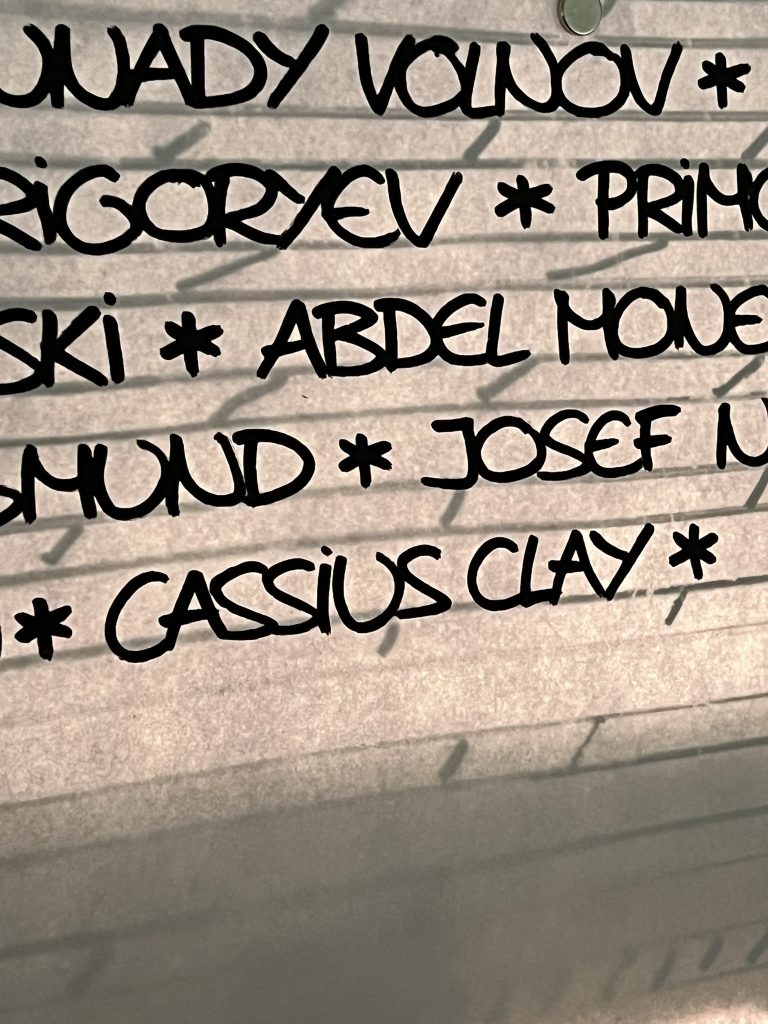 NNADY VOLNOV *
RIGORYEV * PRIMO
SKI * ABDEL MONE
GMUND * JOSEF N
* CASSIUS CLAY *